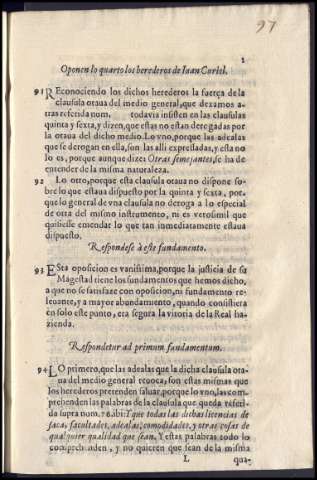 97
1
Oponen lo quarto los herederos de Iuan Curiel.
91 REconociendo los dichos herederos la fuerça de la
clausula otaua del medio general, que dexamos a-
tras referida num. todavia insisten en las clausulas
quinta y sexta, y dizen, que estas no estan derogadas por
la otaua del dicho medio. Lo vno, porque las adealas
que se derogan en ella, son las alli expressadas, y esta no
lo es, porque aunque dize: Otras semejantes, se ha de
entender de la misma naturaleza.
92 Lo otro, porque esta clausula otaua no dispone so-
bre lo que estaua dispuesto por la quinta y sexta, por-
que lo general de vna clausula no deroga a lo especial
de otra del mismo instrumento, ni es verosimil que
quisiesse enmendar lo que tan inmediatamente estaua
dispuesto.
Respondese à este fundamento.
93 ESta oposicion es vanissima, porque la justicia de su
Magestad tiene los fundamentos que hemos dicho,
a que no se satisface con oposicion, ni fundamento re-
leuante, y a mayor abundamiento, quando consistiera
en solo este punto, era segura la vitoria de la Real ha-
zienda.
Respondetur ad primum fundamentum.
94 LO primero, que las adealas que la dicha clausula ota-
ua del medio general reuoca, son estas mismas que
los herederos pretenden saluar, porque lo vno, las com-
prehenden las palabras de la clausula que queda referi-
da supra num. 78. ibi: Y que todas las dichas licencias de
saca, facultades, adealas, comodidades, y otras cosas de
qualquier qualidad que sean. Y estas palabras todo lo
comprehenden, y no quieren que sean de la misma
L
qua-